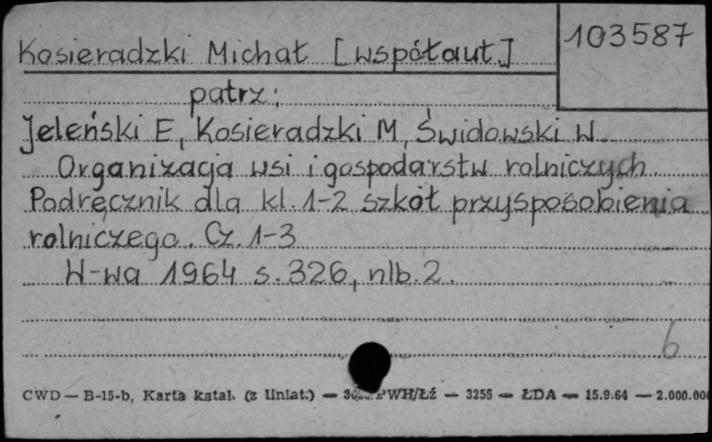 Kosieradzki Michał [współaut.] 103587
patrz:
Jeleński E, Kosieradzki M, Świdowski W.
Organizacja wsi i gospodarstw rolniczych.
Podręcznik dla kl. 1-2 szkół przysposobienia
rolniczego. Cz. 1-3
W-wa 1964 s. 326, nlb. 2.
6
CWD — B-15-b, Karta katal. (z liniat.) — PWH/Łź — 3255 — ŁDA — 15.9.64 — 2.000.000